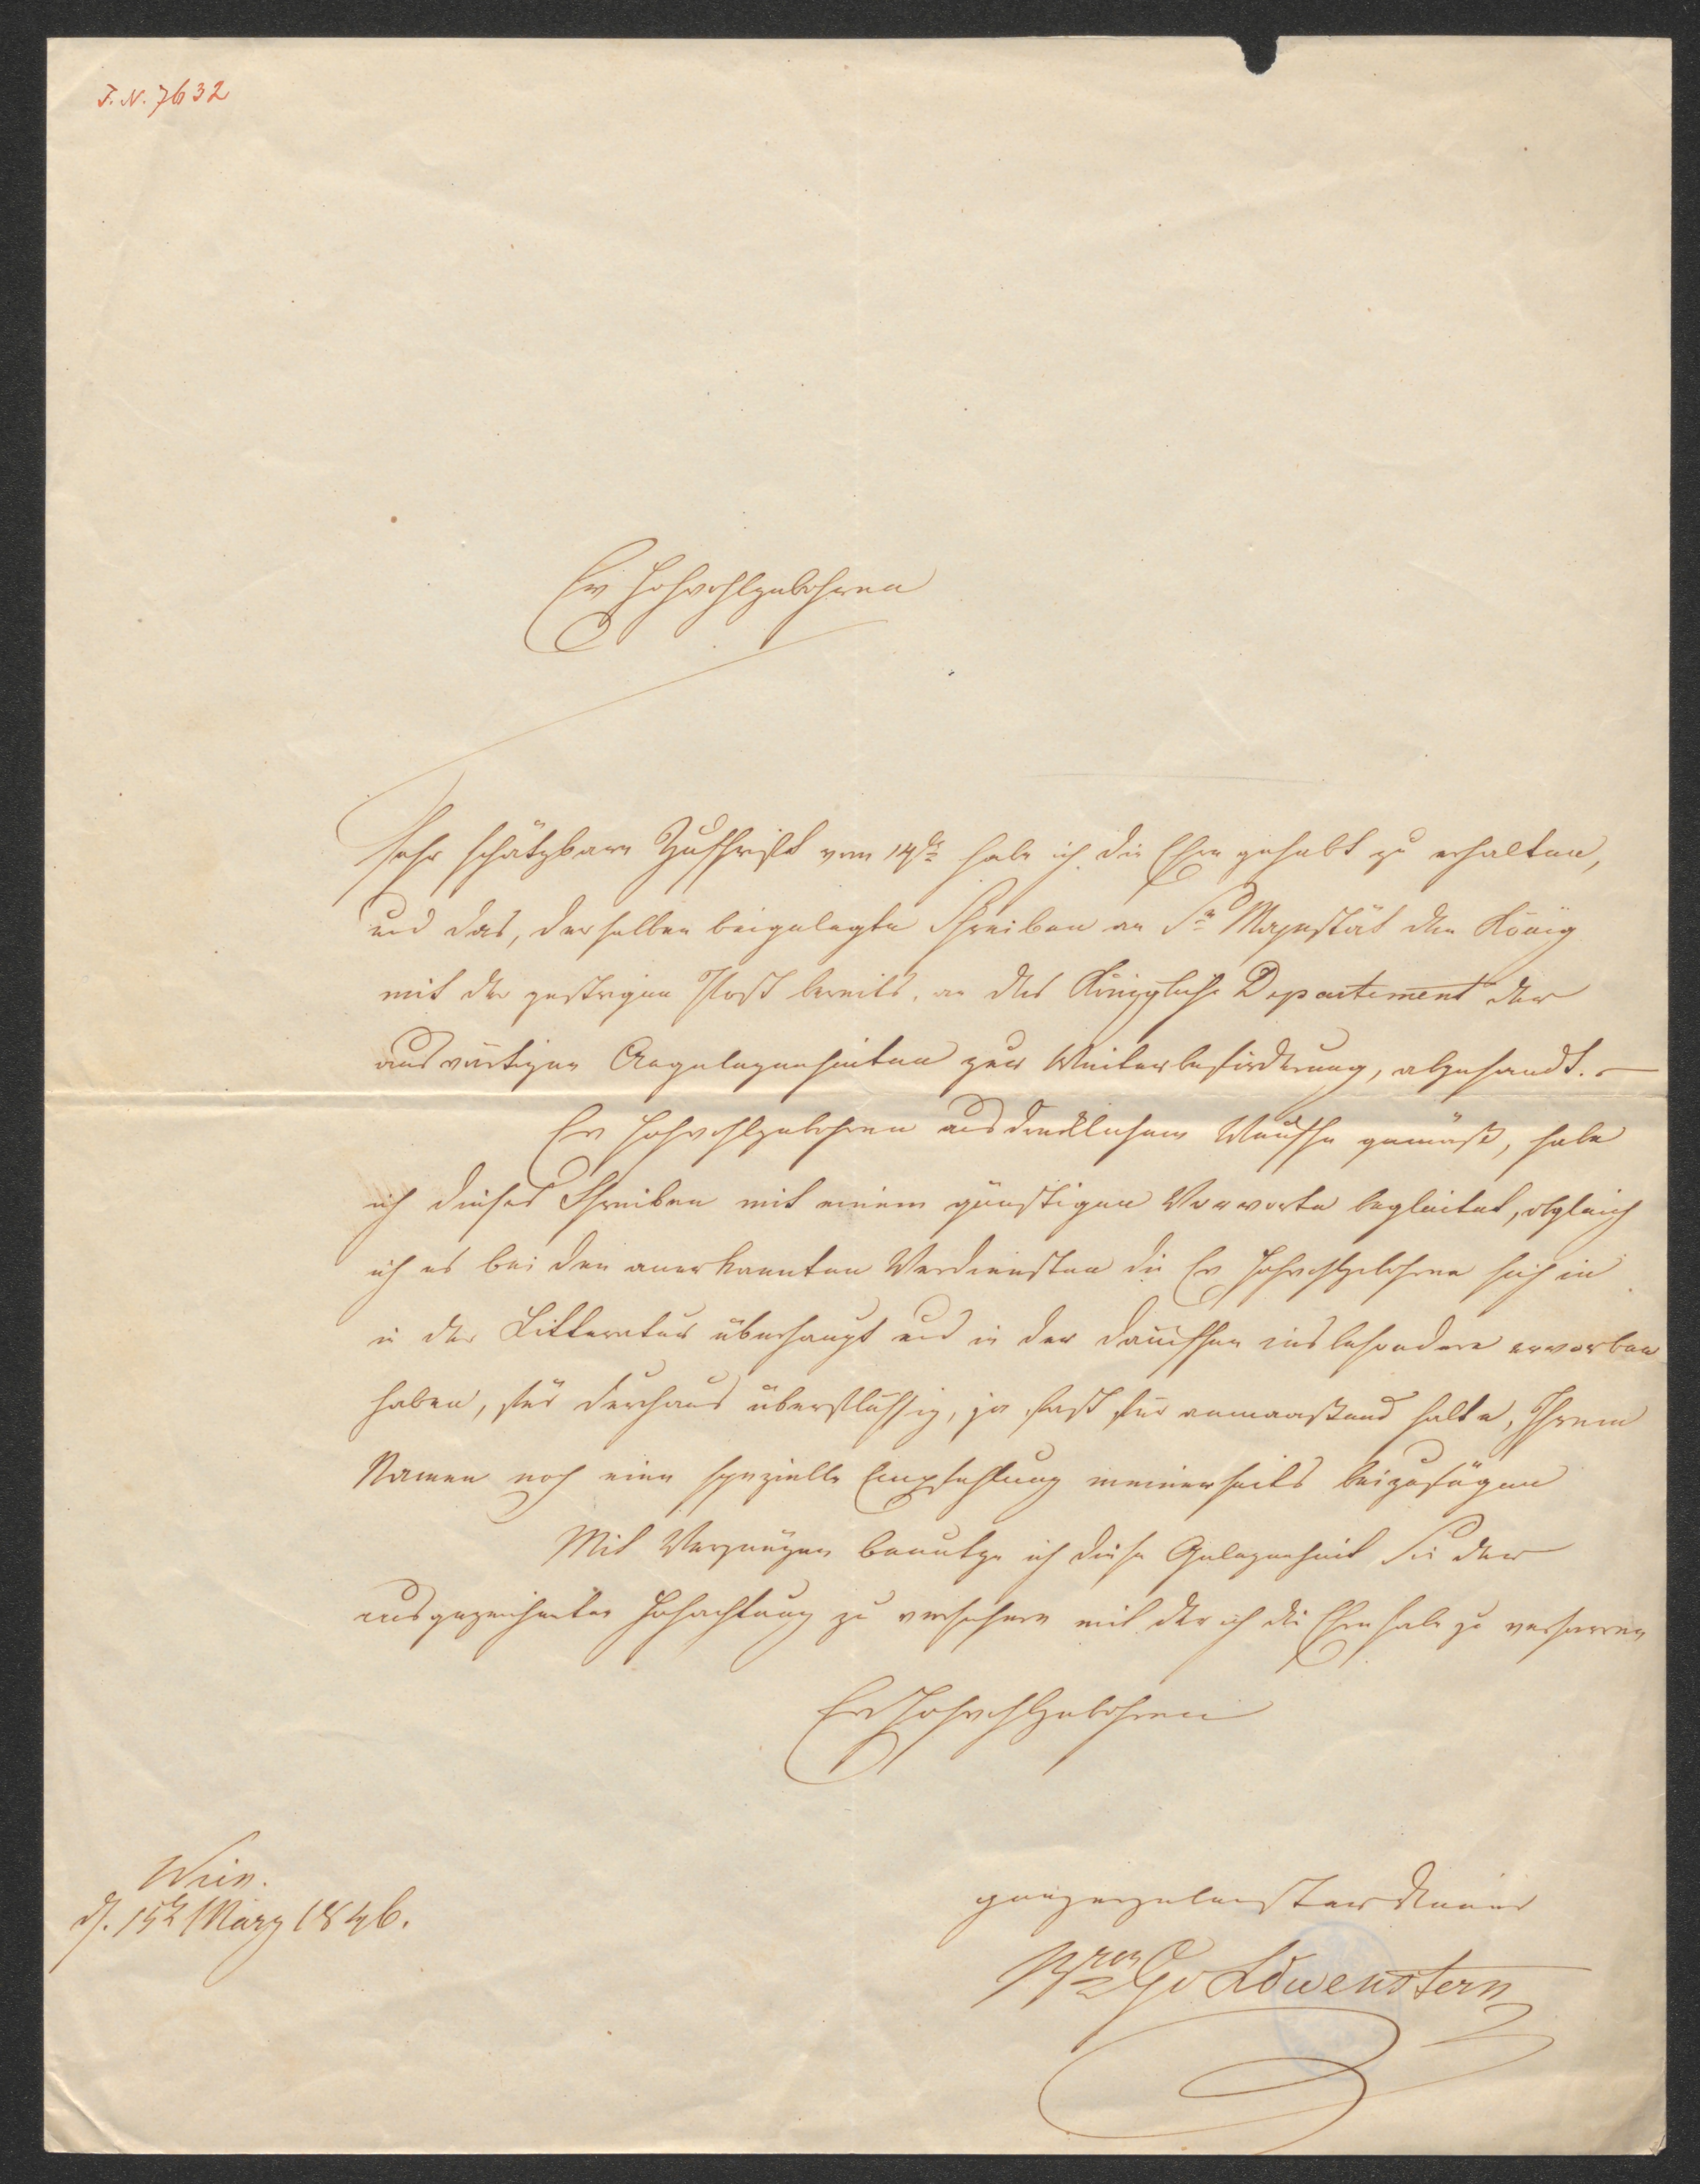 I. N. 7632
Ew Hochwohlgebohren
Sehr schätzbare Zuschrift vom 14ten habe ich die Ehre gehabt zu erhalten,
und das, derselben beigelegte Schreiben an Se Majestät den König
mit der gestrigen Post bereits, an das Königliche Departement der
auswärtigen Angelegenheiten zur Weiterbeförderung, abgesandt. —
Ew Hochwohlgebohren ausdrücklichem Wunsche gemäß, habe
ich dieses Schreiben mit einem günstigen Vorworte begleitet, obgleich
ich es bei den anerkannten Verdiensten die Ew Hochwohlgebohren sich in
in der Litteratur überhaupt und in der dänischen insbesondere erworben
haben, für durchaus überflüssig, ja fast für anmaaßend halte, Ihrem
Namen noch eine spezielle Empfehlung meinerseits beizufügen
Mit Vergnügen benutze ich diese Gelegenheit Sie der
ausgezeichneten Hochachtung zu versichern mit der ich die Ehre habe zu verharren
Ew Hochwohlgebohren
Wien.
d. 15t März 1846.
ganz ergebenster Diener
Löwenstern